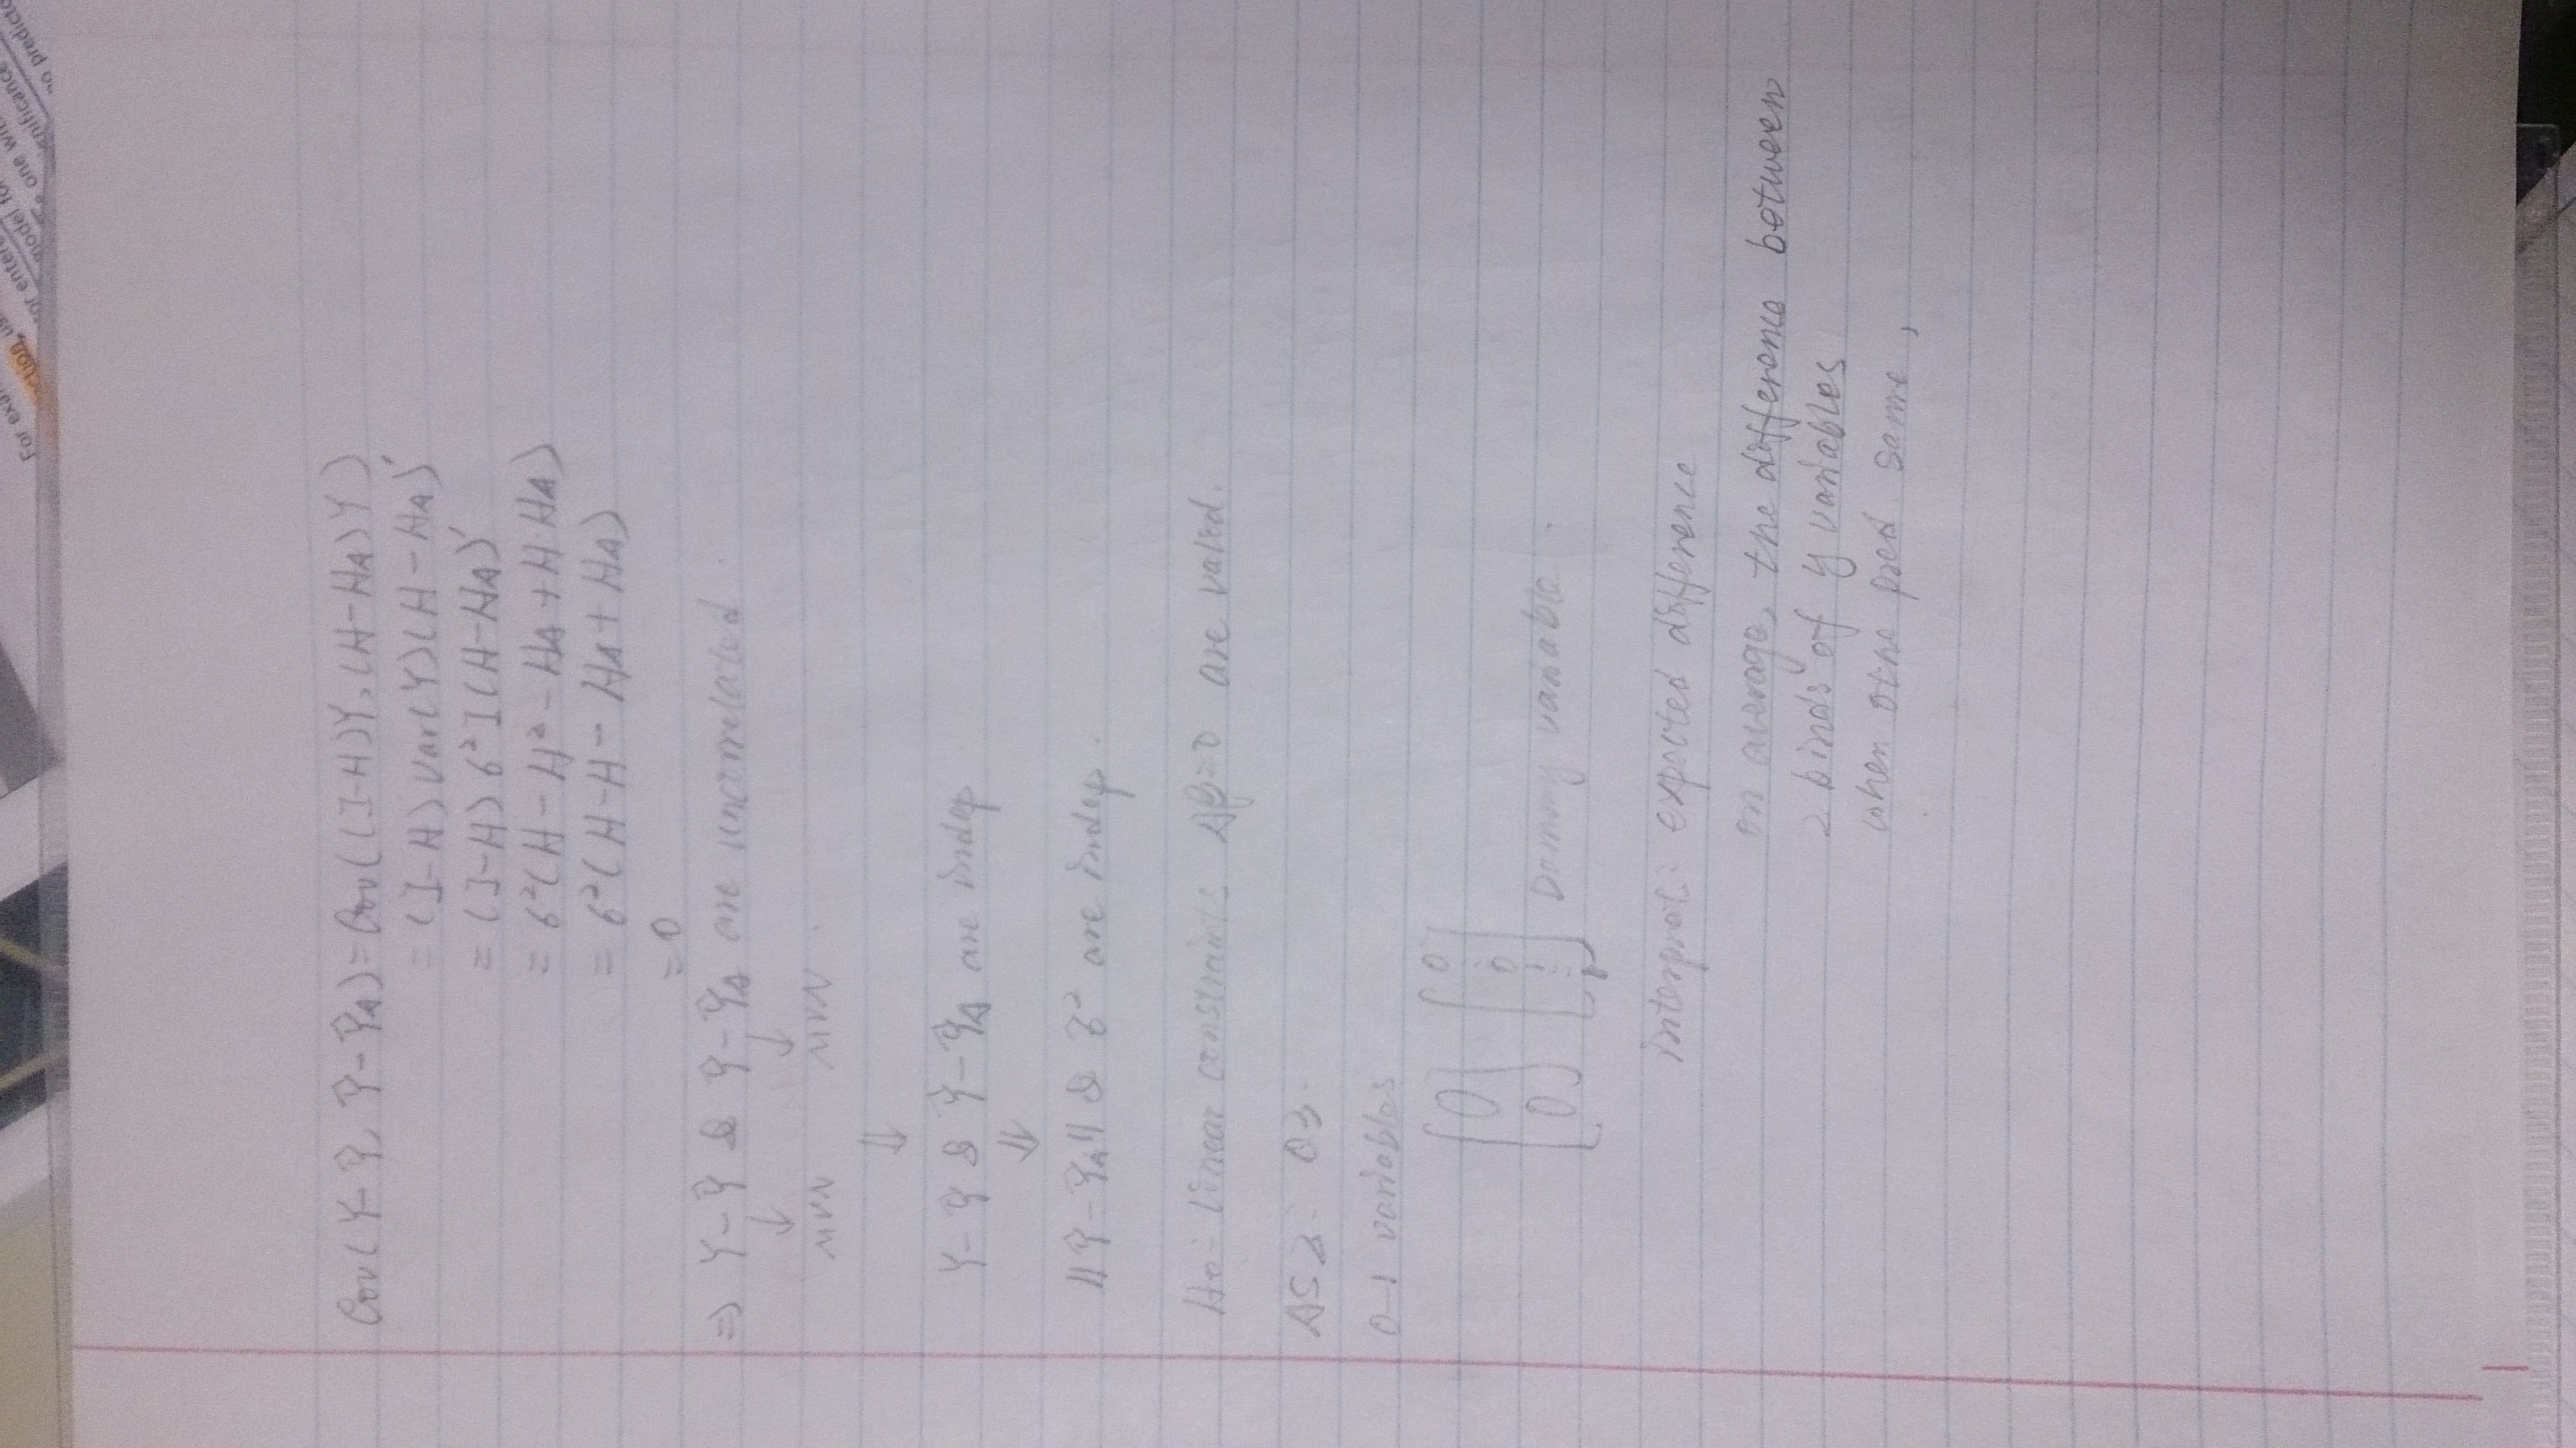 For exa
ction us
or entere
model fo
e one wi
gnificance
no predicto
Cov(Y-Ŷ, Ŷ-Ŷ_A) = Cov((I-H)Y, (H-H_A)Y)
= (I-H) Var(Y)(H-H_A)'
= (I-H) σ²I(H-H_A)'
= σ²(H-H²-H_A+H·H_A)
= σ²(H-H-H_A+H_A)
= 0
⇒ Y-Ŷ & Ŷ-Ŷ_A are uncorrelated.
↓ ↓
MVN MVN.
⇓
Y-Ŷ & Ŷ-Ŷ_A are indep
⇓
||Ŷ-Ŷ_A|| & σ̂² are indep.
H0: linear constraints Aβ=0 are valid.
AS2: Q3.
0-1 variables
[0 0] [0 ⋮ 0 1 ⋮ 1] Dummy variable.
interpret: expected difference
on average, the difference between
2 kinds of y variables
when othe pred. same,